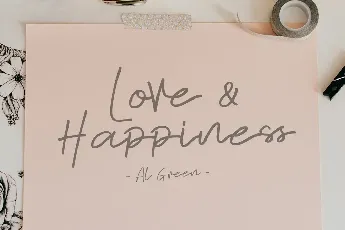 Love &
Happiness
- Al Green -